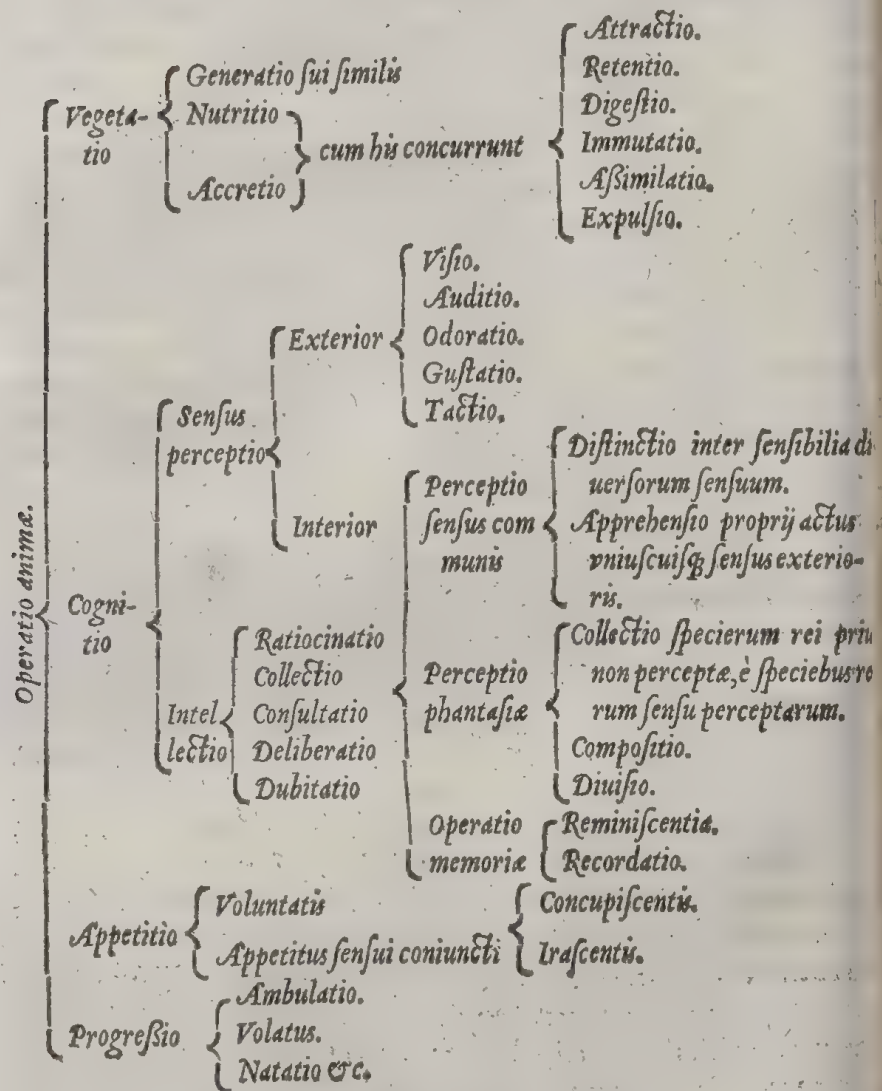 Operatio animæ.
Vegeta-
tio
Generatio ſui ſimilis
Nutritio
Accretio
cum his concurrunt
Attractio.
Retentio.
Digeſtio.
Immutatio.
Aſſimilatio.
Expulſio.
Cogni-
tio
Senſus
perceptio
Exterior
Viſio.
Auditio.
Odoratio.
Guſtatio.
Tactio.
Interior
Perceptio
ſenſus com
munis
Diſtinctio inter ſenſibilia di
uerſorum ſenſuum.
Apprehenſio proprij actus
vniuſcuiſq; ſenſus exterio-
ris.
Perceptio
phantaſiæ
Collectio ſpecierum rei priu
non perceptæ, è ſpeciebus re
rum ſenſu perceptarum.
Compoſitio.
Diuiſio.
Operatio
memoriæ
Reminiſcentia.
Recordatio.
Intel
lectio
Ratiocinatio
Collectio
Conſultatio
Deliberatio
Dubitatio
Appetitio
Voluntatis
Appetitus ſenſui coniuncti
Concupiſcentis.
Iraſcentis.
Progreſſio
Ambulatio.
Volatus.
Natatio &c.